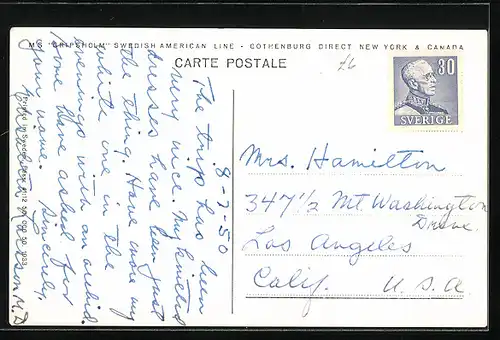 M/S "GRIPSHOLM" SWEDISH AMERICAN LINE - GOTHENBURG DIRECT NEW YORK & CANADA
CARTE POSTALE
30
SVERIGE
8-7-50
The trip has been
very nice. My knitted
dresses have been just
the thing. Have worn my
white one in the
evenings with an orchid.
Some have asked for
your name. Sincerely,
Larson M.D.
Mrs. Hamilton
347½ Mt. Washington
Drive
Los Angeles
Calif. U.S.A.
Printed in Sweden